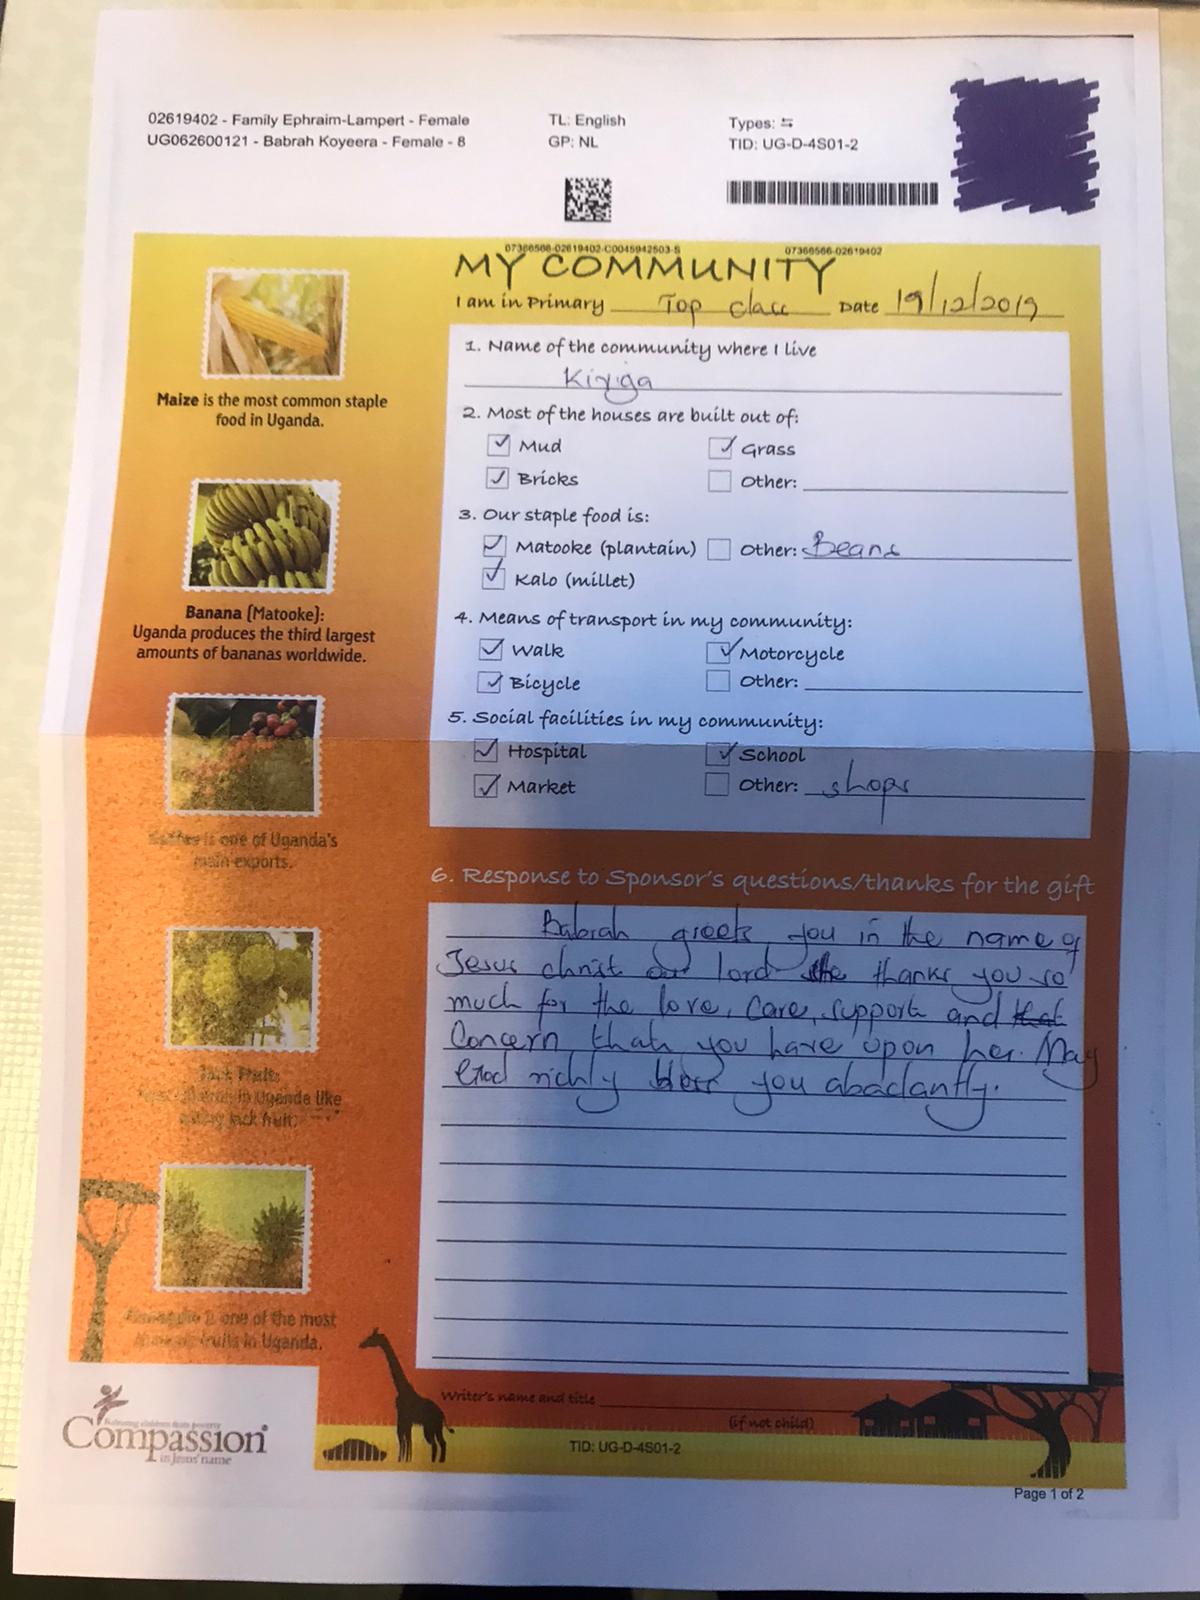 02619402 - Family Ephraim-Lampert - Female
UG062600121 - Babrah Koyeera - Female - 8
TL: English
GP: NL
Types:
TID: UG-D-4S01-2
07366566-02619402-C0045942503-S
07366566-02619402
MY COMMUNITY
I am in Primary Top class Date 19/12/2019
1. Name of the community where I live
Kiryiga
2. Most of the houses are built out of:
Mud
Grass
Bricks
Other:
3. Our staple food is:
Matooke (plantain)
Other: Beans
Kalo (millet)
4. Means of transport in my community:
Walk
Motorcycle
Bicycle
Other:
5. Social facilities in my community:
Hospital
School
Market
Other: shops
6. Response to Sponsor's questions/thanks for the gift
Babrah greets you in the name of
Jesus christ our lord She thanks you so
much for the love, care, support and that
Concern that you have upon her. May
God richly bless you abadantly.
Maize is the most common staple
food in Uganda.
Banana (Matooke):
Uganda produces the third largest
amounts of bananas worldwide.
Coffee is one of Uganda's
main exports.
Jack Fruit:
in Uganda like
eating jack fruit.
Pineapple is one of the most
fruits in Uganda.
Writer's name and title
(if not child)
Compassion®
in Jesus' name
TID: UG-D-4S01-2
Page 1 of 2